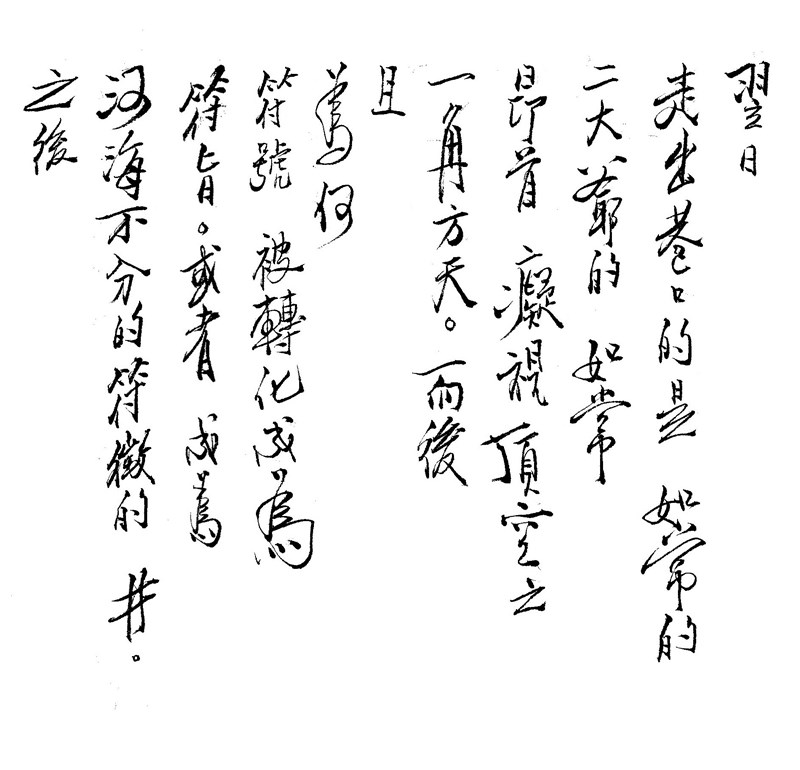 翌日
走出巷口的是 如常的
二大爺的 如常
昂首 癡視頂空之
一角方天。而後
且
為何
符號 被轉化成為
符旨。或者 成為
河海不分的符徵的 井。
之後